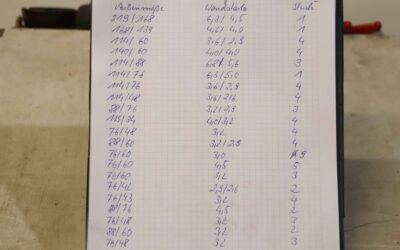 Wandstärke Stück
219/168 6,3/4,5 1
168/139 4,0 1
114/60 3,6/2,9 4
140/60 4,0/4,0 4
114/88 5,6 3
114/76 6,3/5,0 1
114/76 3,6/2,9 4
114/48 3,6/2,6 4
88/76 3,2/2,9 3
4,0/3,2 4
76/48 3,2 4
88/60 3,2/2,9 4
76/60 3,0 9
76/60 4,5 5
76/60 3,2 3
76/42 2,9/2,6 2
76/43 3,2 4
88/76 4,5 2
76/48 3,2 3
88/60 3,2 2
76/48 3,2 3